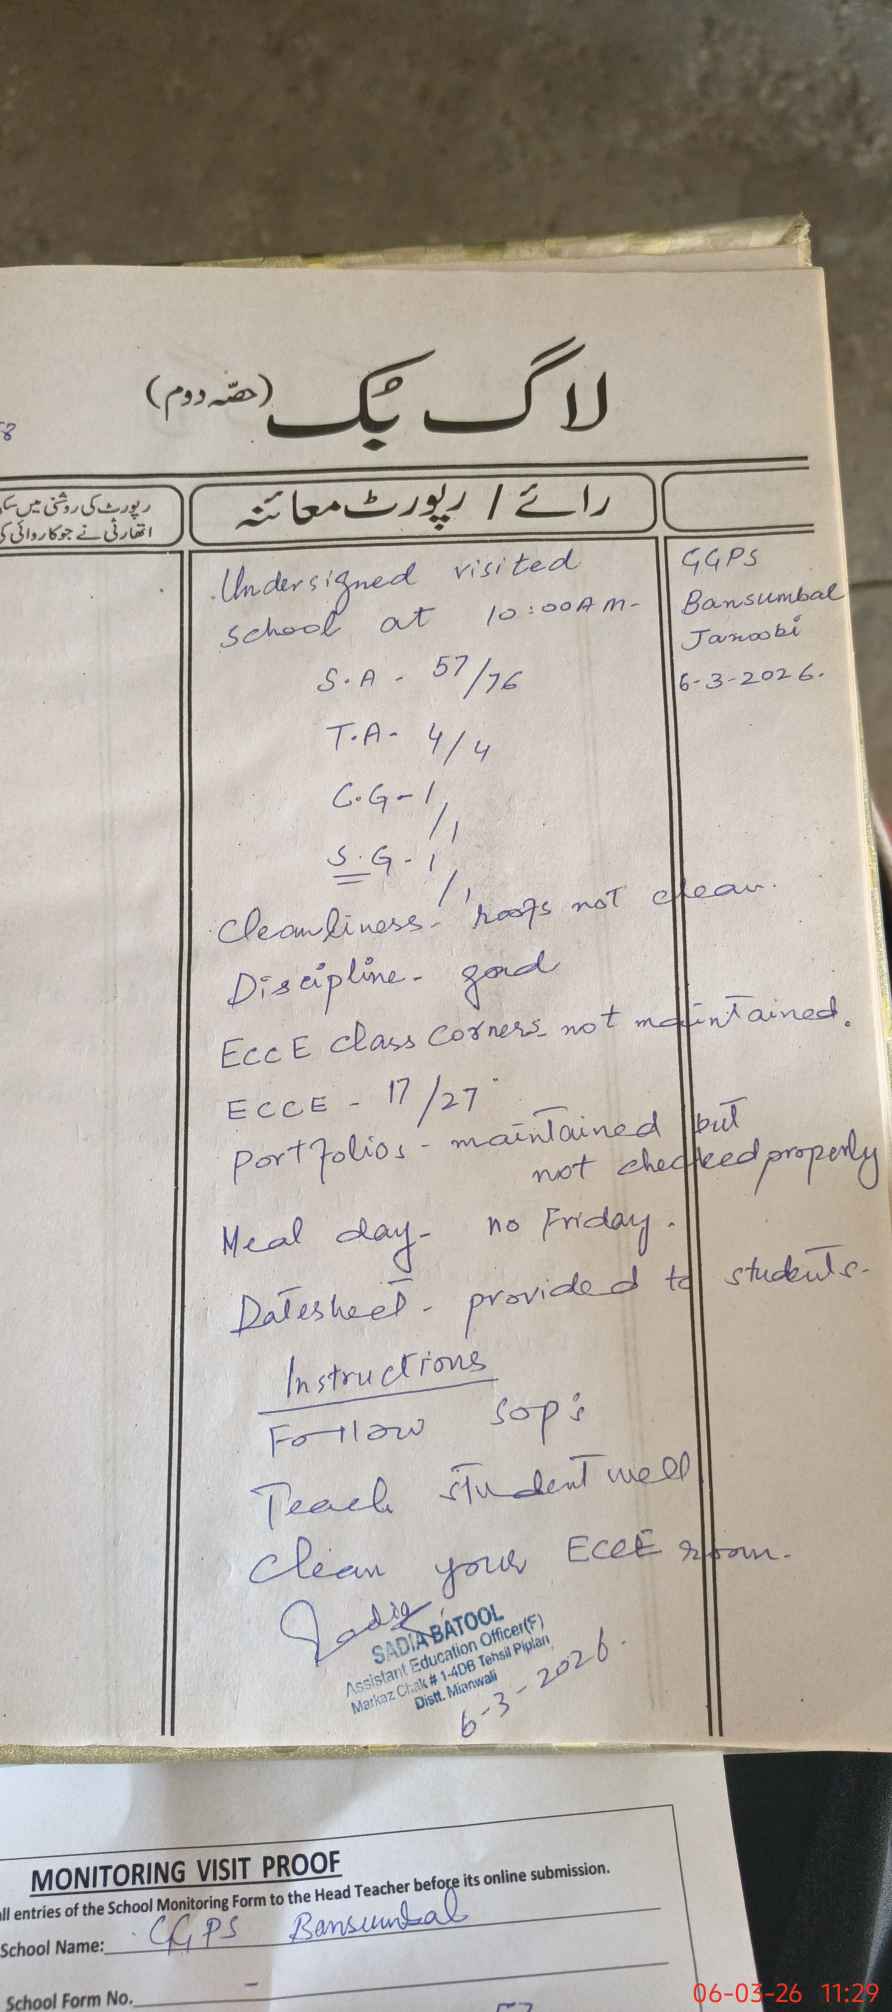 لاگ بُک (حصّہ دوم)
58
رپورٹ کی روشنی میں
اتھارٹی نے جو کاروائی کی
رائے / رپورٹ معائنہ
GGPS
Bansumbal
Janoobi
6-3-2026.
Undersigned visited
school at 10:00AM-
S.A - 57/76
T.A- 4/4
C.G-1/1
S.G-1/1
Cleanliness- roofs not clean.
Discipline- good
EccE class corners not maintained.
ECCE - 17/27
Portfolios - maintained but
not checked properly
Meal day- no Friday.
Datesheet - provided to students.
Instructions
Follow sop's
Teach student well
Clean your ECCE room.
Sadia
SADIA BATOOL
Assistant Education Officer(F)
Markaz Chak # 1-4DB Tehsil Piplan
Distt. Mianwali
6-3-2026.
MONITORING VISIT PROOF
all entries of the School Monitoring Form to the Head Teacher before its online submission.
School Name: GGPS Bansumbal
School Form No. -
06-03-26 11:29